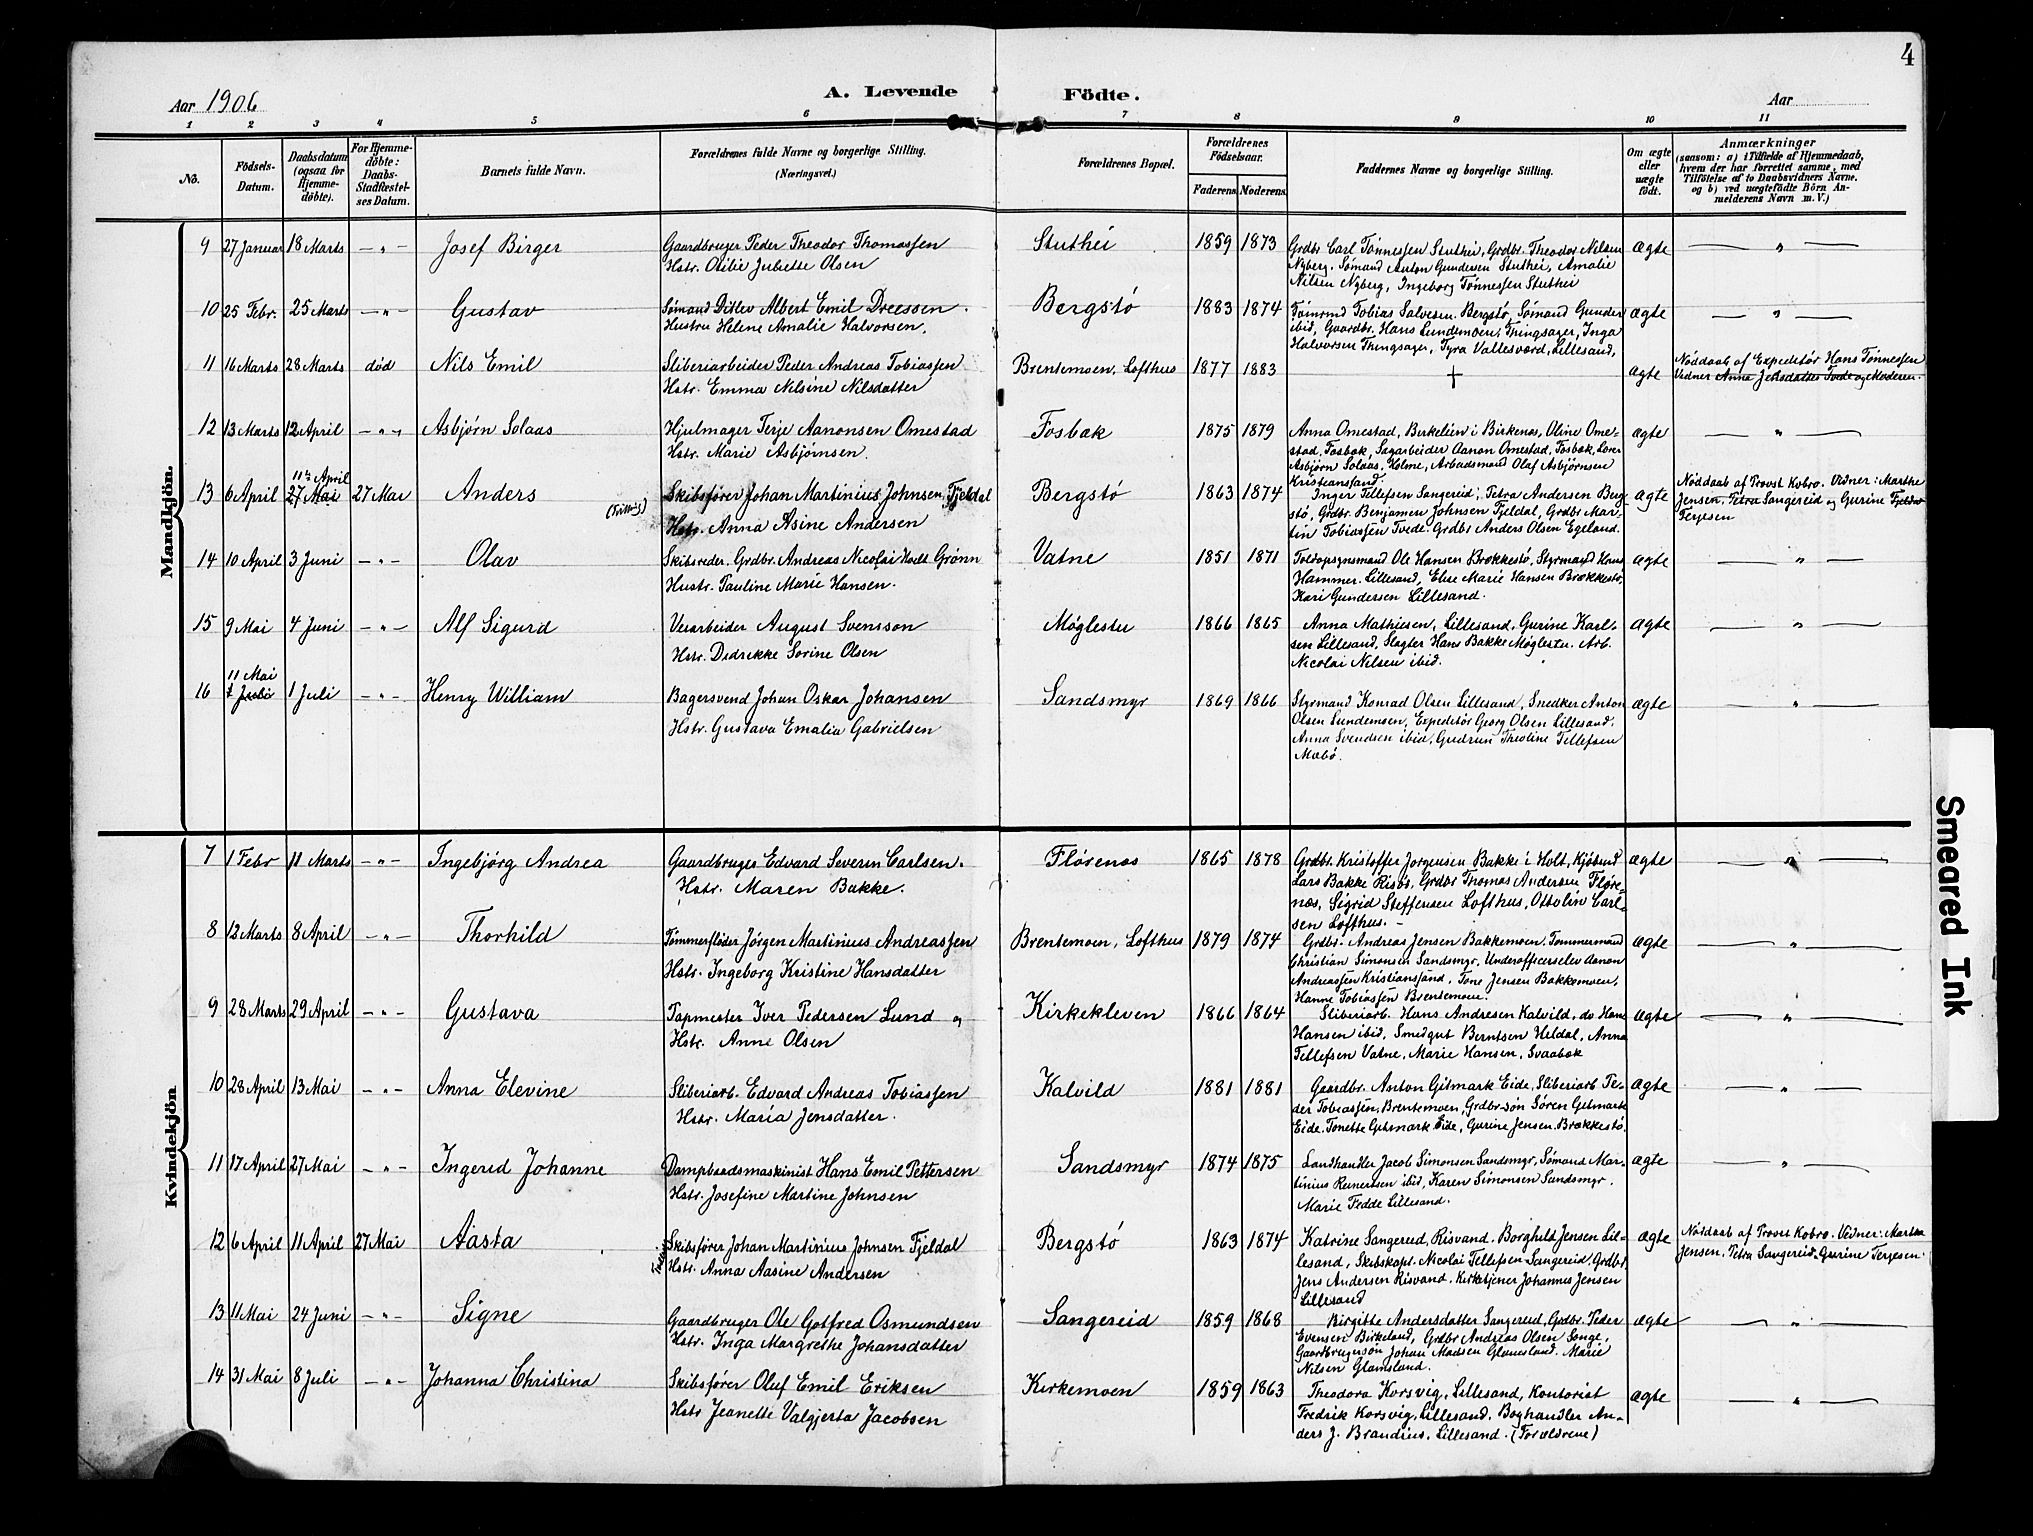 4
Aar 1906
A. Levende Födte.
Aar
1 2 3 4 5 6 7 8 9 10 11
No.
Födsels-Datum.
Daabsdatum (ogsaa for Hjemme-döbte).
For Hjemme-döbte: Daabs-Stadfæstel-ses Datum.
Barnets fulde Navn.
Forældrenes fulde Navne og borgerlige Stilling.
(Næringsvei.)
Forældrenes Bopæl.
Forældrenes Födselsaar.
Faderens. Moderens.
Faddernes Navne og borgerlige Stilling.
Om ægte eller uægte födt.
Anmærkninger
(saasom: a) i Tilfælde af Hjemmedaab,
hvem der har forrettet samme, med
Tilföielse af to Daabsvidners Navne.
og b) ved uægtefödte Börn An-
melderens Navn m. V.)
Mandkjön.
9 27 Januar 18 Marts — " — Josef Birger Gaardbruger Peder Theodor Thomassen Stuthei 1859 1873 Grdbr. Carl Tønnessen Stuthei, Grdbr. Theodor Nilsen ægte — " —
Hstr. Otilie Juliette Olsen Nyberg, Sømand Anton Gundersen Stuthei, Amalie
Nilsen Nyberg, Ingeborg Tønnessen Stuthei
10 25 Febr. 25 Marts — " — Gustav Sømand Ditlev Albert Emil Dreessen. Bergstø 1883 1874 Tømrmd Tobias Salvesen Bergstø, Sømand Gunder ægte — " —
Hustru Helene Amalie Halvorsen. ibid, Gaardbr. Hans Lundemoen, Thingsager, Inga
Halvorsen Thingsager, Tyra Vallesværd, Lillesand,
11 16 Marts 28 Marts død Nils Emil Sliberiarbeider Peder Andreas Tobiassen Brentemoen, Lofthus 1877 1883 † ægte Nøddaab af Expeditør Hans Tønnessen
Hstr. Emma Nilsine Nilsdatter Vidner Anna Jensdatter Tvede og Moderen.
12 13 Marts 12 April — " — Asbjørn Solaas Hjulmager Terje Aanonsen Omestad Fosbæk 1875 1879 Anna Omestad, Birkelien i Birkenæs, Oline Ome- ægte — " —
Hstr. Marie Asbjørnsen. stad, Fosbæk, Sagarbeider Aanon Omestad, Fosbæk, Lærer
Asbjørn Solaas, Holme, Arbeidsmand Olaf Asbjørnsen
Kristiansand
11te April
13 6 April 27 Mai 27 Mai Anders (Tvilling) Skibsfører Johan Martinius Johnsen, Fjeldal Bergstø 1863 1874 Inger Tellefsen Sangereid, Petra Andersen Berg- ægte Nøddaab af Provst Kobro. Vidner: Marthe
Hstr. Anna Asine Andersen stø, Grdbr. Benjamen Johnsen Fjeldal, Grdbr Mar- Jensen, Petra Sangereid og Gurine Fjeldal
tin Tobiassen Tvede. Grdbr Anders Olsen Egeland. Terjesen
14 10 April 3 Juni — " — Olav Skibsreder. Grdbr. Andreas Nicolai Holt Grønn Vatne 1851 1871 Toldopsynsmand Ole Hansen Brækkestø, Styrmand Hans ægte — " —
Hustr. Pauline Marie Hansen. Hammer. Lillesand, Else Marie Hansen Brækkestø,
Kari Gundersen Lillesand.
15 9 Mai 4 Juni — " — Alf Sigurd Veiarbeider August Svensson Møglestu 1866 1865 Anna Mathiesen, Lillesand, Gurine Karl- ægte — " —
Hstr. Didrikke Sorine Olsen sen Lillesand, Slagter Hans Bakke Møglestu. Arb.
Nicolai Nilsen ibid.
11 Mai
16 1 Juli 1 Juli — " — Henry William Bagersvend Johan Oskar Johansen Sandsmyr 1869 1866 Styrmand Konrad Olsen Lillesand, Snedker Anton ægte — " —
Hstr. Gustava Emalia Gabrielsen Olsen Lundemoen, Expeditør Georg Olsen Lillesand,
Anna Svendsen ibid, Gudrun Theoline Tellefsen
Mæbø.
Kvindekjön
7 1 Febr 11 Marts — " — Ingebjørg Andrea Gaardbruger Edvard Severin Carlsen. Flørenæs 1865 1878 Grdbr. Kristoffer Jørgensen Bakke i Holt, Kjøbmd ægte — " —
Hstr. Maren Bakke. Lars Bakke Risør, Grdbr Thomas Andersen Fløre-
næs, Sigrid Steffensen Lofthus, Ottolin Carl-
sen Lofthus.
8 12 Marts 8 April — " — Thorhild Tømmerfløder Jørgen Martinius Andreassen Brentemoen, Lofthus 1879 1874 Grdbr. Andreas Jensen Bakkemoen. Tømmermand ægte — " —
Hstr. Ingeborg Kristine Hansdatter Christian Simonsen Sandsmyr, Underofficerselev Aanon
Andreassen Kristianssand, Tone Jensen Bakkemoen,
Hanne Tobiassen Brentemoen.
9 28 Marts 29 April — " — Gustava Papmester Iver Pedersen Lund og Kirkekleven 1866 1864 Sliberiarb. Hans Andresen Kalvild, do Hans ægte — " —
Hstr. Anne Olsen Hansen ibid, Smedgut Berntsen Heldal, Anna
Tellefsen Vatne, Marie Hansen, Svaabæk
10 28 April 13 Mai — " — Anna Elevine Sliberiarb. Edvard Andreas Tobiassen Kalvild 1881 1881 Gaardbr. Anton Gitmark Eide, Sliberiarb Pe- ægte — " —
Hstr. Maria Jensdatter. der Tobiassen, Brentemoen, Grdbr.søn Søren Gitmark
Eide. Tonette Gitmark Eide, Gurine Jensen. Brækkestø.
11 17 April 27 Mai — " — Ingerid Johanne Dampbaadsmaskinist Hans Emil Pettersen Sandsmyr 1874 1875 Landhandler Jacob Simonsen Sandsmyr, Sømand Mar- ægte — " —
Hstr. Josefine Martine Johnsen tinius Reinersen ibid, Karen Simonsen Sandsmyr.
Marie Fedde Lillesand.
12 6 April 11 April 27 Mai Aasta Skibsfører Johan Martinius Johnsen Fjeldal Bergstø 1863 1874 Katrine Sangereid, Risvand. Borghild Jensen Lil- ægte Nøddaab af Provst Kobro. Vidner: Marthe
Hstr. Anna Aasine Andersen lesand, Skibskapt. Nicolai Tellefsen Sangereid, Grdbr. Jensen, Petra Sangereid. Gurine Terjesen.
Jens Andersen Risvand. Kirketjener Johannes Jensen
Lillesand
13 11 Mai 24 Juni — " — Signe Gaardbruger Ole Gotfred Osmundsen Sangereid 1859 1868 Birgitte Andersdatter Sangereid, Grdbr. Peder ægte — " —
Hstr. Inga Margrethe Johansdatter Evensen Birkeland, Grdbr Andreas Olsen Songe,
Gaardbrugersøn Johan Madsen Glamsland. Marie
Nilsen Glamsland.
14 31 Mai 8 Juli — " — Johanna Christina Skibsfører Oluf Emil Eriksen Kirkemoen 1859 1863 Theodora Korsvig, Lillesand, Kontorist ægte — " —
Hstr Jeanette Valgjerta Jacobsen Fredrik Korsvig, Lillesand. Boghandler An-
ders J. Brandius, Lillesand. (Forældrene)
Smeared Ink